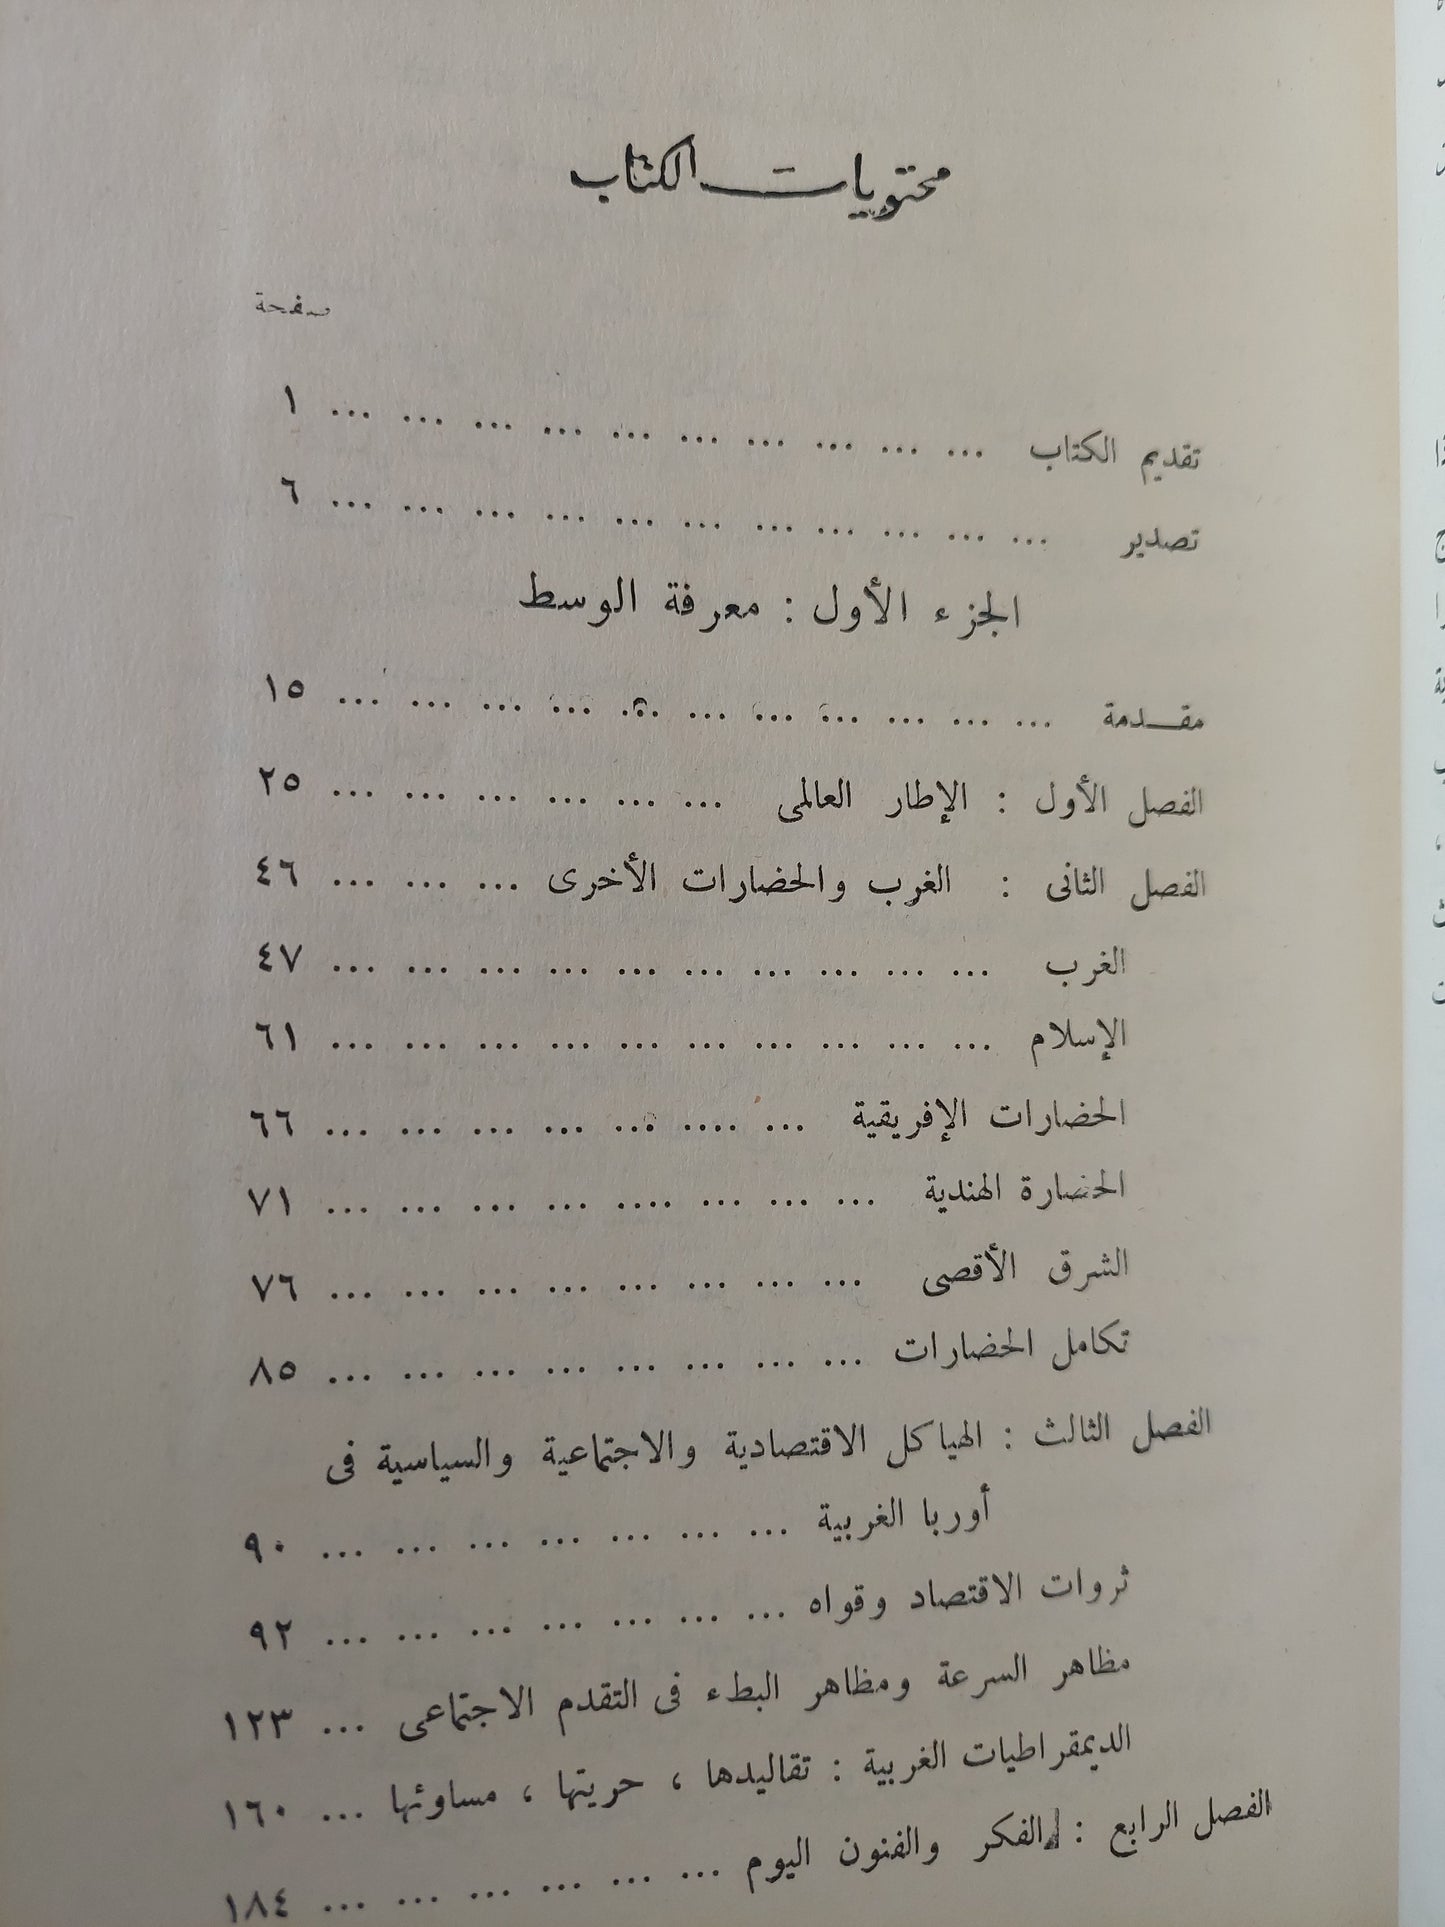 محتويات الكتاب
صفحة
تقديم الكتاب ... ... ... ... ... ... ... ... ... ... ١
تصدير ... ... ... ... ... ... ... ... ... ... ... ٦
الجزء الأول : معرفة الوسط
مقـدمة ... ... ... ... ... ... ... ... ... ... ... ١٥
الفصل الأول : الإطار العالمى ... ... ... ... ... ... ٢٥
الفصل الثانى : الغرب والحضارات الأخرى ... ... ... ٤٦
الغرب ... ... ... ... ... ... ... ... ... ... ٤٧
الإسلام ... ... ... ... ... ... ... ... ... ... ٦١
الحضارات الإفريقية ... .... ... ... ... ... ... ٦٦
الحضارة الهندية ... ... ... .... ... ... ... ... ٧١
الشرق الأقصى ... ... ... ... ... ... ... ... ٧٦
تكامل الحضارات ... ... ... ... ... ... ... ... ٨٥
الفصل الثالث : الهياكل الاقتصادية والاجتماعية والسياسية فى
أوربا الغربية ... ... ... ... ... ... ... ٩٠
ثروات الاقتصاد وقواه ... ... ... ... ... ... ... ٩٢
مظاهر السرعة ومظاهر البطء فى التقدم الاجتماعى ... ١٢٣
الديمقراطيات الغربية : تقاليدها ، حريتها ، مساوئها ... ١٦٠
الفصل الرابع : الفكر والفنون اليوم ... ... ... ... ... ... ١٨٤